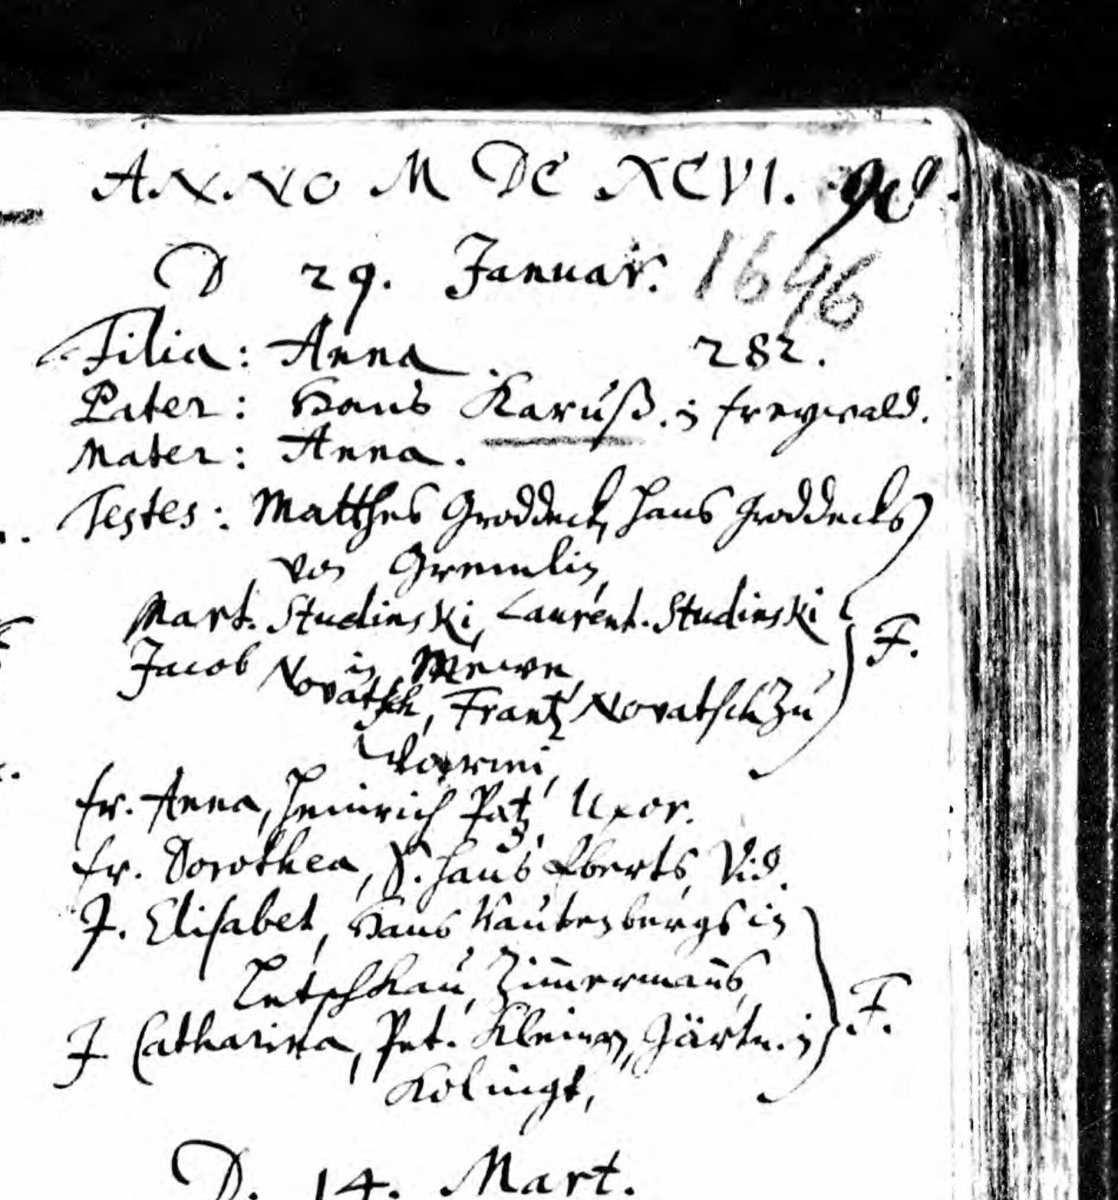 ANNO M DC XCVI. 90.
D 29. Januar. 1696
Filia: Anna. 282.
Pater: Hans Karuß. in Freywald.
Mater: Anna.
Testes: Matthes Groddeck, Hans Groddecks
von Gremlin,
Mart. Studinski, Laurent. Studinski
in Mewe, F.
Jacob Novatsch, Frantz Novatsch zu
fr. Anna, Heinrich Patz, Uxor.
fr. Dorothea, S. Hans Eberts, Vid.
J. Elisabet, Hans Rautenbergs in
Letschkau, Zim̄ermans,
J. Catharina, Pet. Kleinen, Gärtn. in F.